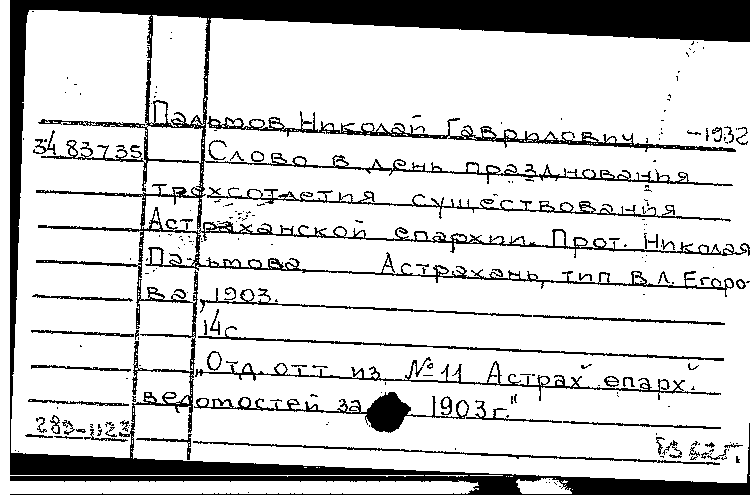 Пальмов, Николай Гаврилович, -1932
34 83735 Слово в день празднования
трехсотлетия существования
Астраханской епархии. Прот. Николая
Пальмова Астрахань, тип В.Л. Егоро-
ва, 1903.
14с
„Отд. отт из №11 Астрах епарх.
ведомостей за 1903г."
289-1123